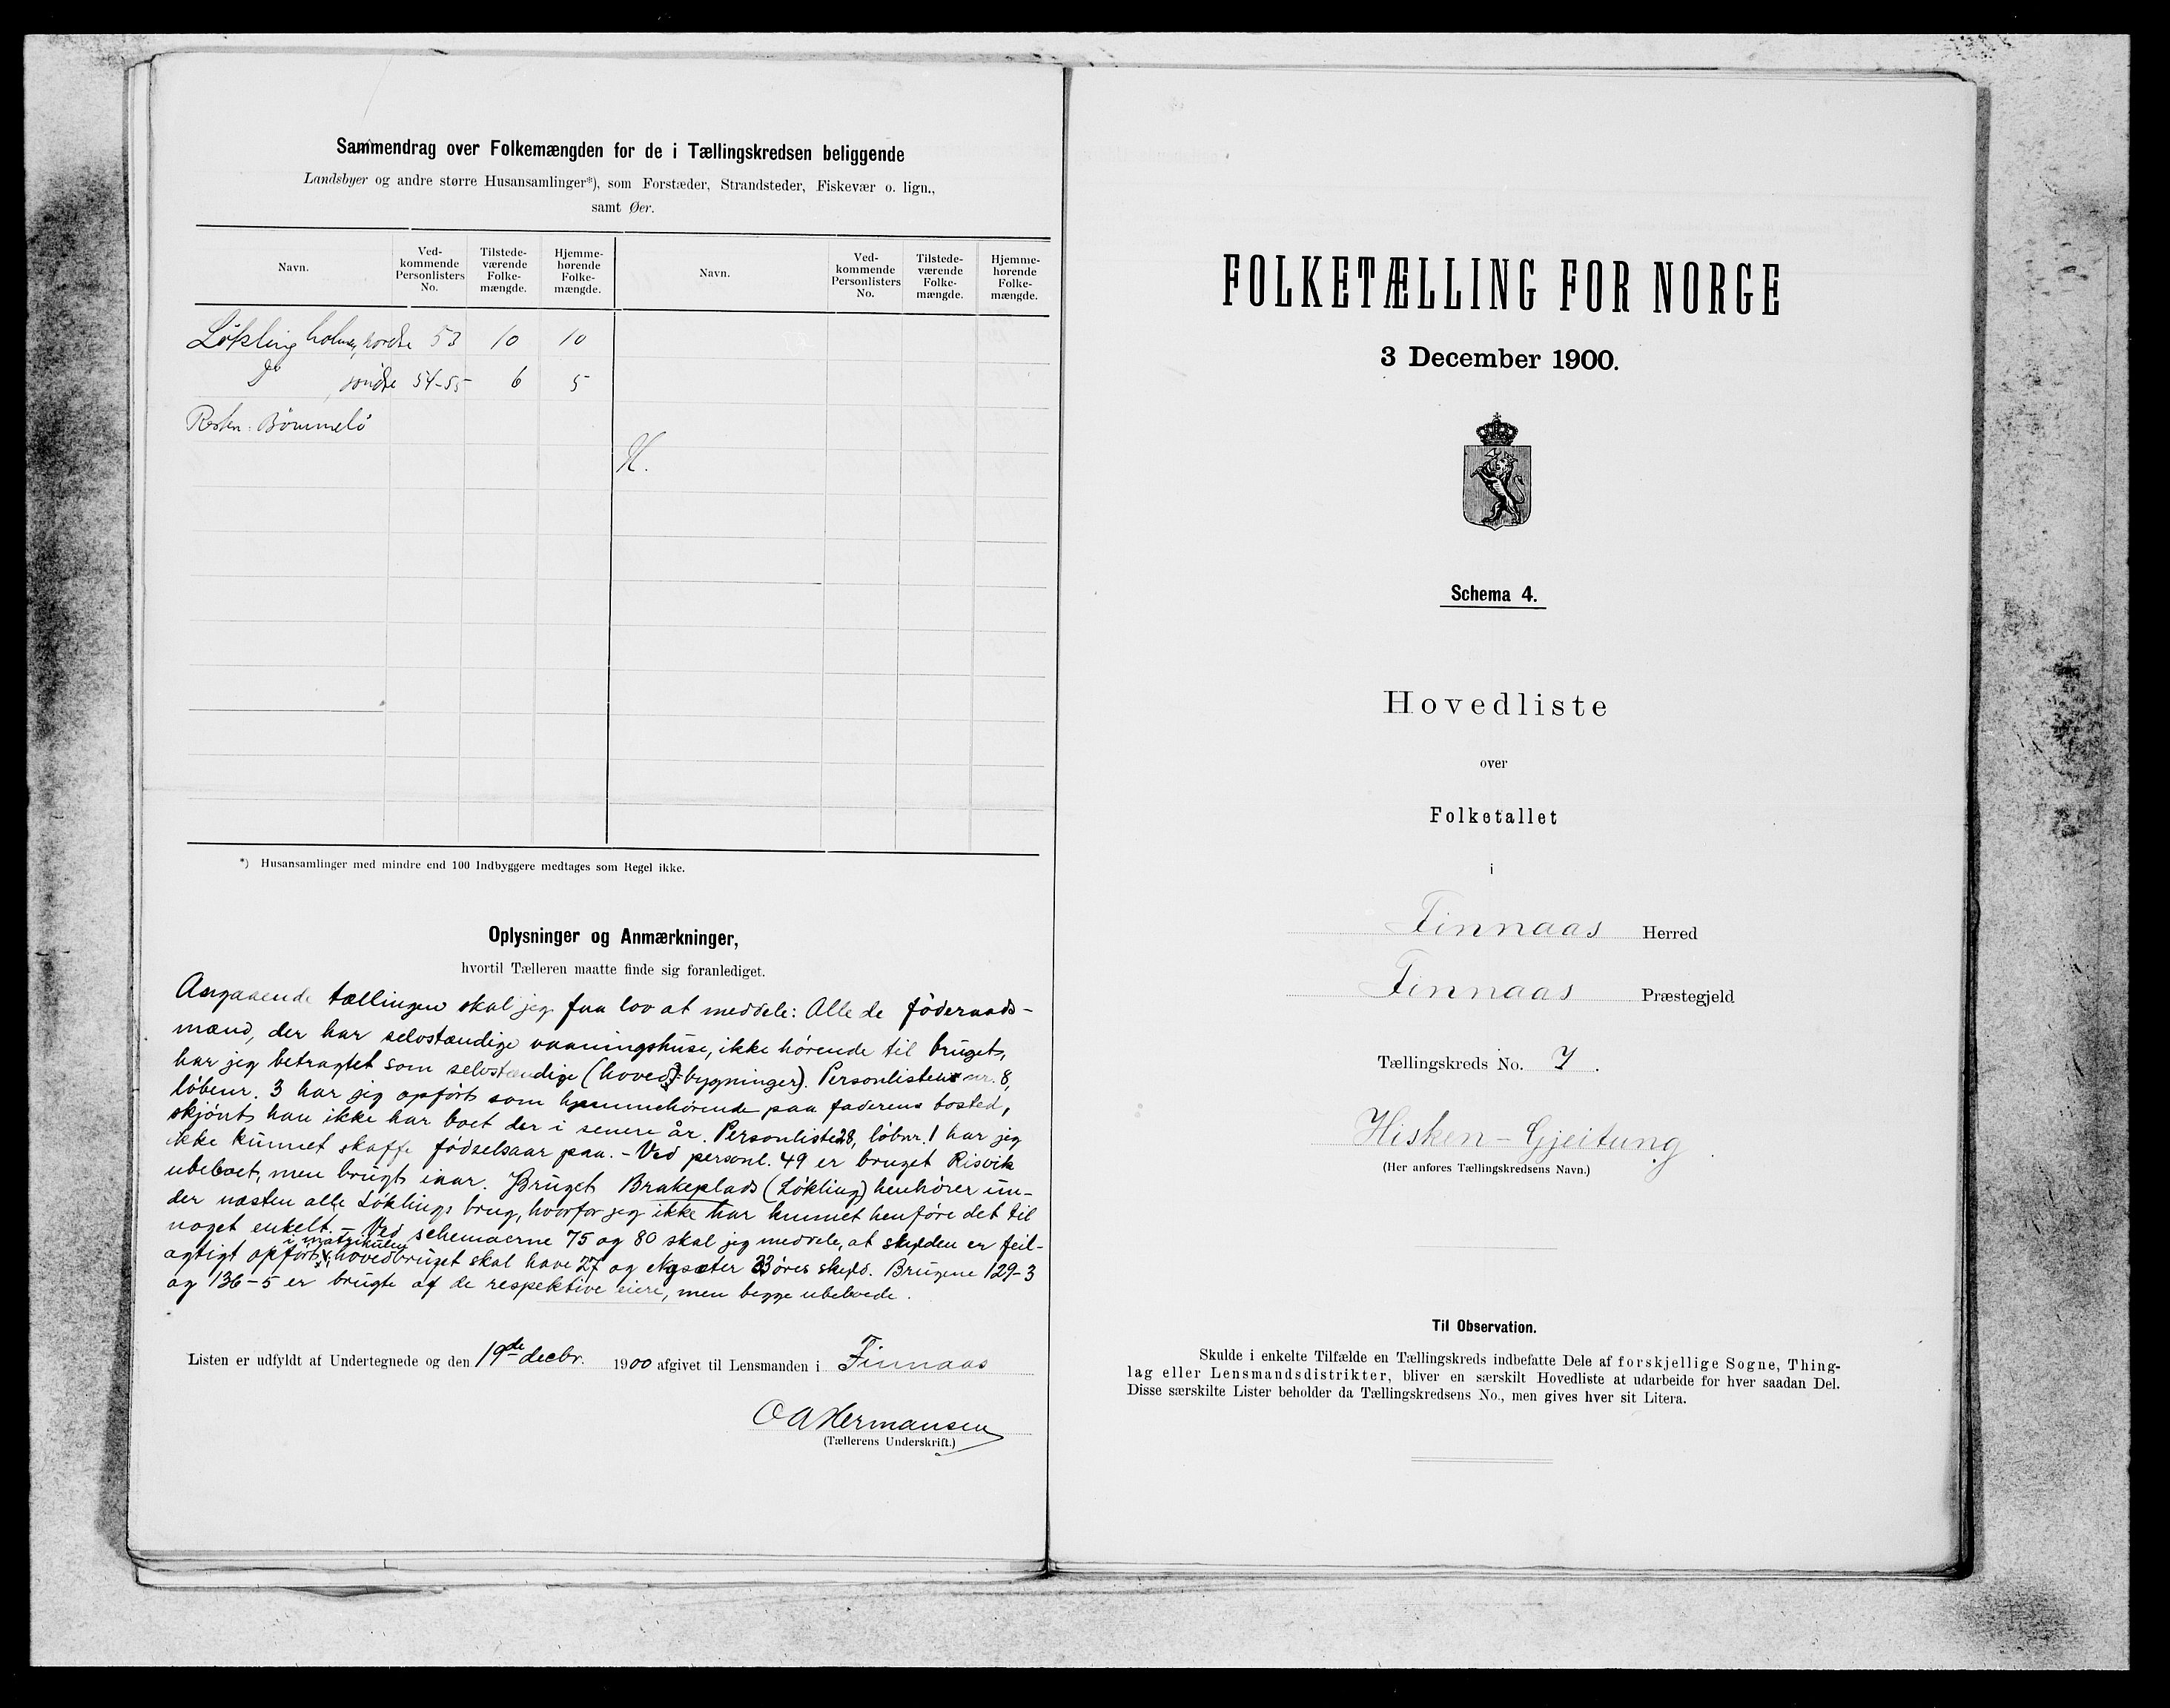 Sammendrag over Folkemængden for de i Tællingskredsen beliggende
Landsbyer og andre større Husansamlinger*), som Forstæder, Strandsteder, Fiskevær o. lign.,
samt Øer.
Navn. Ved-kommende Personlisters No. Tilstede-værende Folke-mængde. Hjemme-hørende Folke-mængde. Navn. Ved-kommende Personlisters No. Tilstede-værende Folke-mængde. Hjemme-hørende Folke-mængde.
Løkling holmen, nordre 53 10 10
Do søndre 54-55 6 5
Resten: Bømmelö
H.
*) Husansamlinger med mindre end 100 Indbyggere medtages som Regel ikke.
Oplysninger og Anmærkninger,
hvortil Tælleren maatte finde sig foranlediget.
Angaaende tællingen skal jeg faa lov at meddele: Alle de föderaads-
mænd, der har selvstændige vaaningshuse, ikke hørende til bruget,
har jeg betragtet som selvstændige (hoved-bygninger). Personlistens nr. 8,
løbenr. 3 har jeg opført som hjemmehörende paa faderens bosted,
skjönt han ikke har boet der i senere år. Personliste 28, löbnr. 1 har jeg
ikke kunnet skaffe födselsaar paa. - Ved personl. 49 er bruget Risvik
ubeboet, men brugt iaar. Bruget Brakeplads (Løkling) henhører un-
der næsten alle Løklings brug, hvorfor jeg ikke har kunnet henføre det til
noget enkelt. - Ved schemaerne 75 og 80 skal jeg meddele, at skylden er feil-
i matrikulen
agtigt opført; hovedbruget skal have 27 og Nysæter 33 öres skyld. Brugene 129-3
og 136-5 er brugte af de respektive eiere, men begge ubeboede.
Listen er udfyldt af Undertegnede og den 19de decbr. 1900 afgivet til Lensmanden i Finnaas
O A Hermansen
(Tællerens Underskrift.)
FOLKETÆLLING FOR NORGE
3 December 1900.
Schema 4.
Hovedliste
over
Folketallet
i
Finnaas Herred
Finnaas Præstegjeld
Tællingskreds No. 7.
Hisken-Gjeitung.
(Her anføres Tællingskredsens Navn.)
Til Observation.
Skulde i enkelte Tilfælde en Tællingskreds indbefatte Dele af forskjellige Sogne, Thing-
lag eller Lensmandsdistrikter, bliver en særskilt Hovedliste at udarbeide for hver saadan Del.
Disse særskilte Lister beholder da Tællingskredsens No., men gives hver sit Litera.